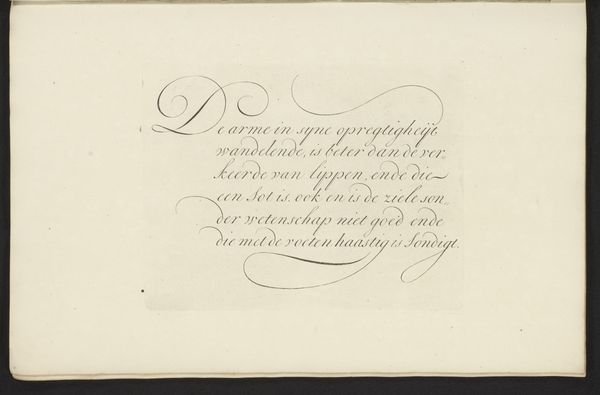 De arme in syne opregtigheijt,
wandelende, is beter dan de ver„
keerde van lippen, ende die
een sot is. ook en is de ziele son„
der wetenschap niet goed ende
die met de voeten haastig is Sondigt.